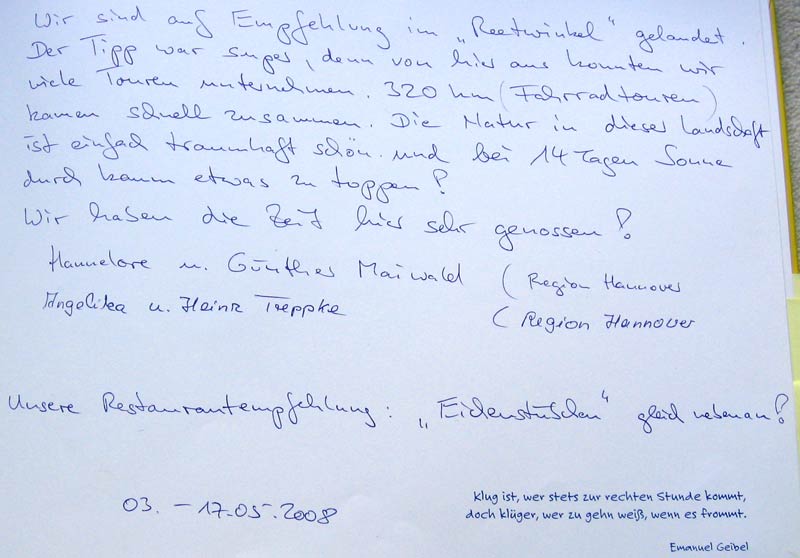 Wir sind auf Empfehlung im „Reetwinkel" gelandet.
Der Tipp war super, denn von hier aus konnten wir
viele Touren unternehmen. 320 km (Fahrradtouren)
kamen schnell zusammen. Die Natur in dieser Landschaft
ist einfach traumhaft schön. und bei 14 Tagen Sonne
durch kaum etwas zu toppen!
Wir haben die Zeit hier sehr genossen!
Hannelore u. Günther Maiwald (Region Hannover
Angelika u. Heinz Treppke (Region Hannover
Unsere Restaurantempfehlung: „Eidenstübchen" gleich nebenan!
03. – 17.05.2008
Klug ist, wer stets zur rechten Stunde kommt,
doch klüger, wer zu gehn weiß, wenn es frommt.
Emanuel Geibel